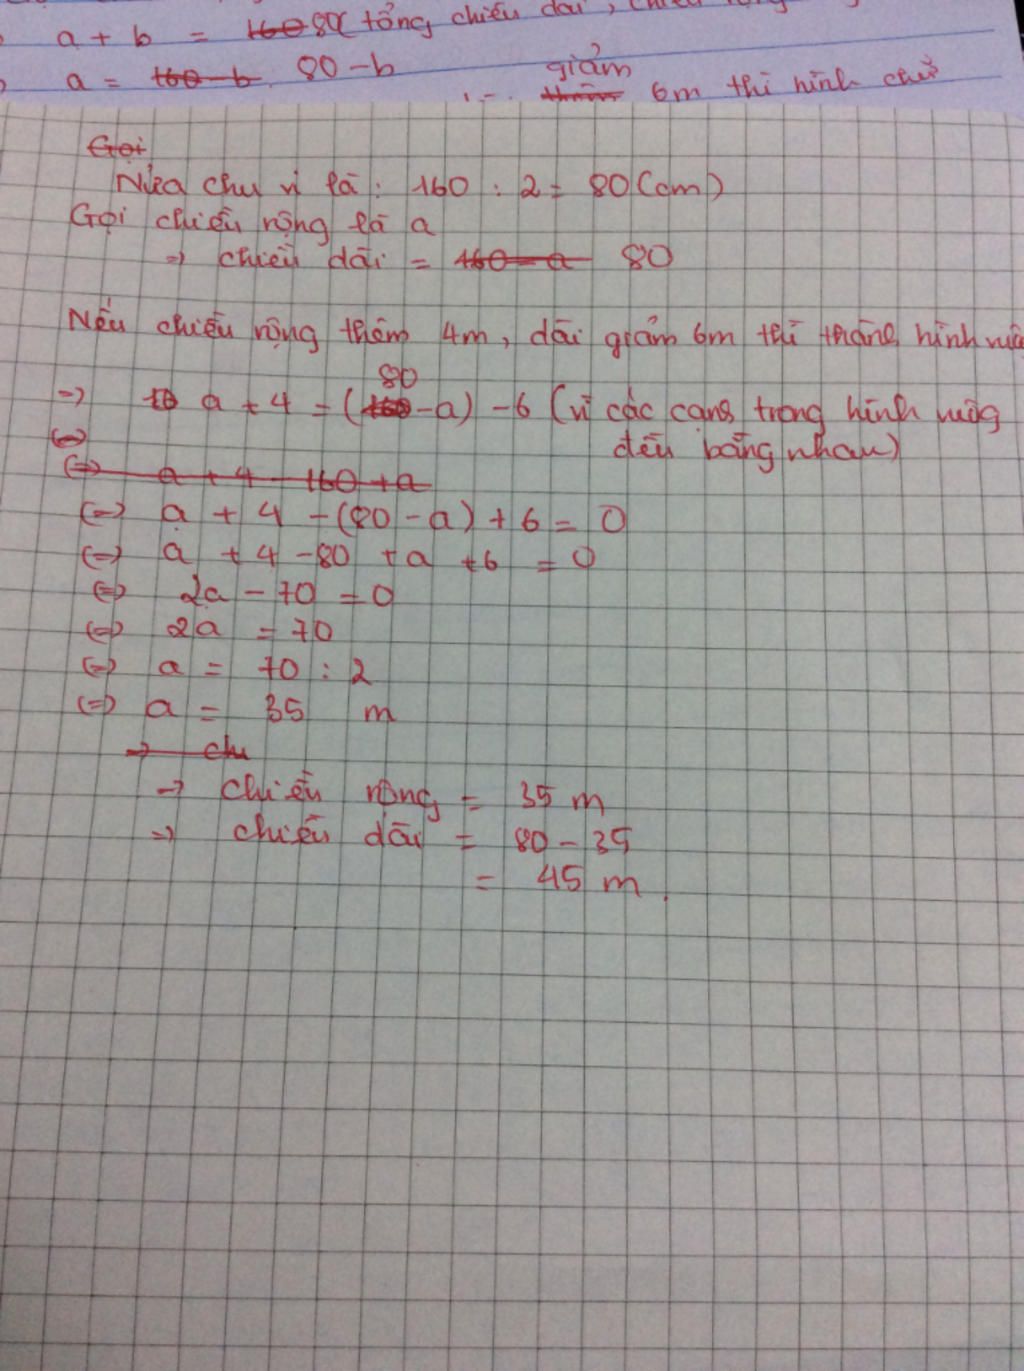 a + b = 160 80 ( tổng chiều dài, chiều rộng
a = 160 - b 80 - b
giảm
6m thì hình chữ
Gọi
Nửa chu vi là : 160 : 2 = 80 (cm)
Gọi chiều rộng là a
=> chiều dài = 160 - a 80
Nếu chiều rộng thêm 4m, dài giảm 6m thì thành hình vuô
80
=> a + 4 = (160 - a) - 6 ( vì các cạnh trong hình vuông
<=> đều bằng nhau)
<=> a + 4 - 160 + a
<=> a + 4 - (80 - a) + 6 = 0
<=> a + 4 - 80 + a + 6 = 0
<=> 2a - 70 = 0
<=> 2a = 70
<=> a = 70 : 2
<=> a = 35 m
=> chu
=> chiều rộng = 35 m
=> chiều dài = 80 - 35
= 45 m .